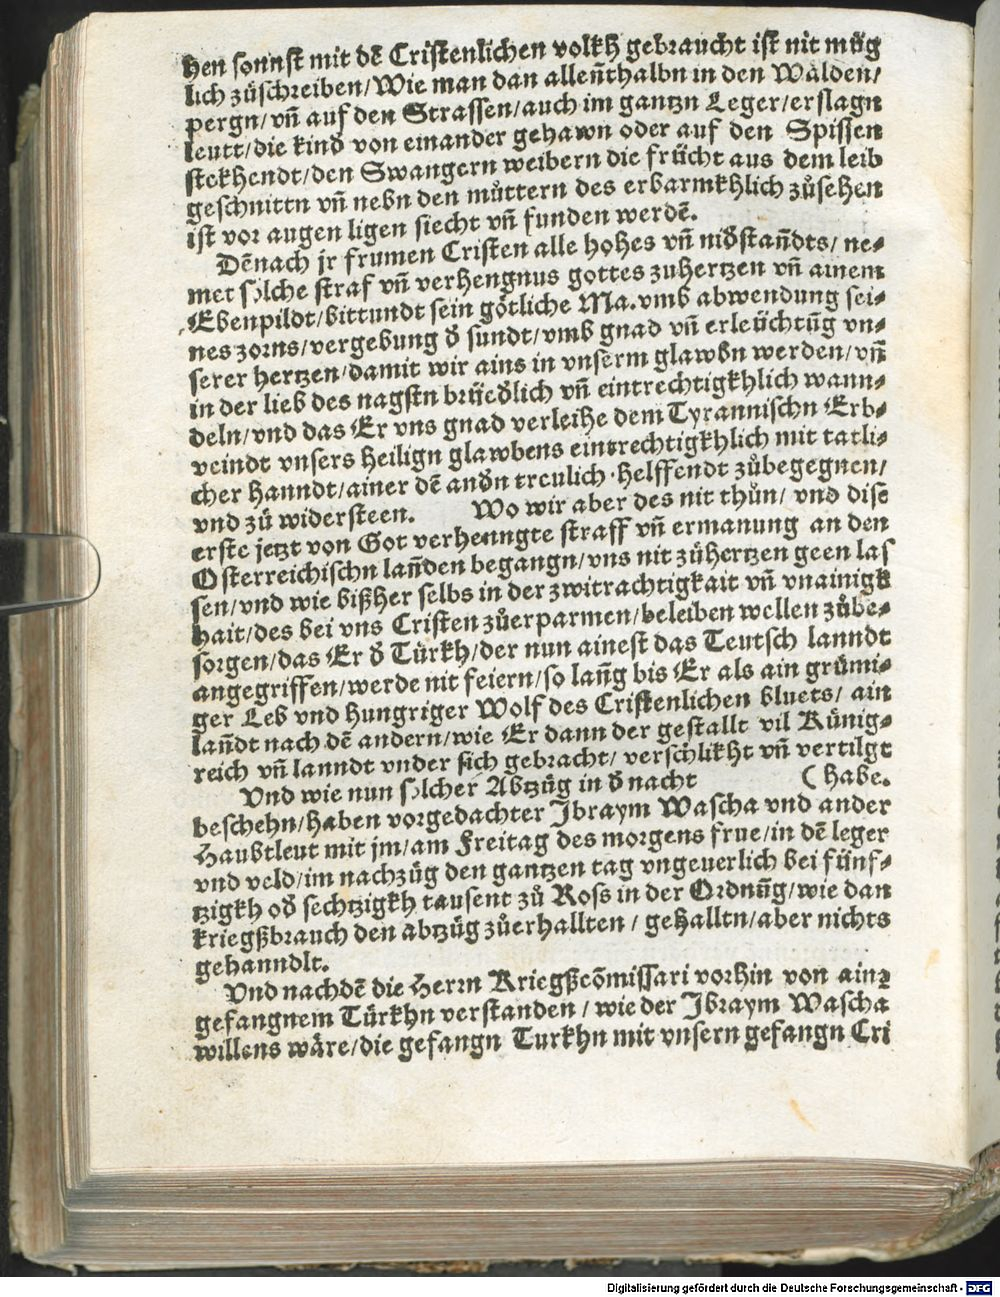 hen sonnst mit dē Cristenlichen volkh gebraucht ist nit müg
lich züschreiben/Wie man dan alleñthalbn in den Wälden/
pergn/vñ auf den Strassen/auch im gantzn Leger/erslagn
leutt/die kind von einander gehawn oder auf den Spissen
stekhendt/den Swangern weibern die frücht aus dem leib
geschnittn vñ nebn den můttern des erbarmkhlich zůsehen
ist vor augen ligen siecht vñ funden werdē.
Dēnach jr frumen Cristen alle hohes vñ nidstañdts/ ne⸗
met solche straf vñ verhengnus gottes zuhertzen vñ ainem
Ebenpildt/bittundt sein götliche Ma.vmb abwendung sei⸗
nes zorns/vergebung d̄ sundt/vmb gnad vñ erleüchtūg vn⸗
serer hertzen/damit wir ains in vnserm glawbn werden/vñ
in der lieb des nagstn brüedlich vñ eintrechtigkhlich wann⸗
deln/vnd das Er vns gnad verleihe dem Tyrannischn Erb⸗
veindt vnsers heilign glawbens eintrechtigkhlich mit tatli⸗
cher hanndt/ainer dē andn treulich helffendt zůbegegnen/
vnd zü widersteen. Wo wir aber des nit thůn/ vnd dise
erste jetzt von Got verhenngte straff vñ ermanung an den
Osterreichischn lañden begangn/vns nit zühertzen geen las
sen/vnd wie bißher selbs in der zwitrachtigkait vñ vnainigk
hait/des bei vns Cristen zůerparmen/beleiben wellen zůbe⸗
sorgen/das Er d̄ Türkh/der nun ainest das Teutsch lanndt
angegriffen/werde nit feiern/so lañg bis Er als ain grümi⸗
ger Leb vnd hungriger Wolf des Cristenlichen bluets/ ain
lañdt nach dē andern/wie Er dann der gestallt vil Künig⸗
reich vñ lanndt vnder sich gebracht/ verschlikht vñ vertilgt
Vnd wie nun solcher Abtzüg in d̄ nacht (habe.
beschehn/haben vorgedachter Jbraym Wascha vnd ander
Haubtleut mit jm/am Freitag des morgens frue/in dē leger
vnd veld/im nachzüg den gantzen tag vngeuerlich bei fünf⸗
tzigkh od̄ sechtzigkh tausent zů Ross in der Ordnūg/wie dan
kriegßbrauch den abtzüg zůerhallten / gehalltn/aber nichts
gehanndlt.
Vnd nachdē die Herrn Kriegßcōmissari vorhin von ainē
gefangnem Türkhn verstanden / wie der Jbraym Wascha
willens wäre/die gefangn Turkhn mit vnsern gefangn Cri
Digitalisierung gefördert durch die Deutsche Forschungsgemeinschaft - DFG